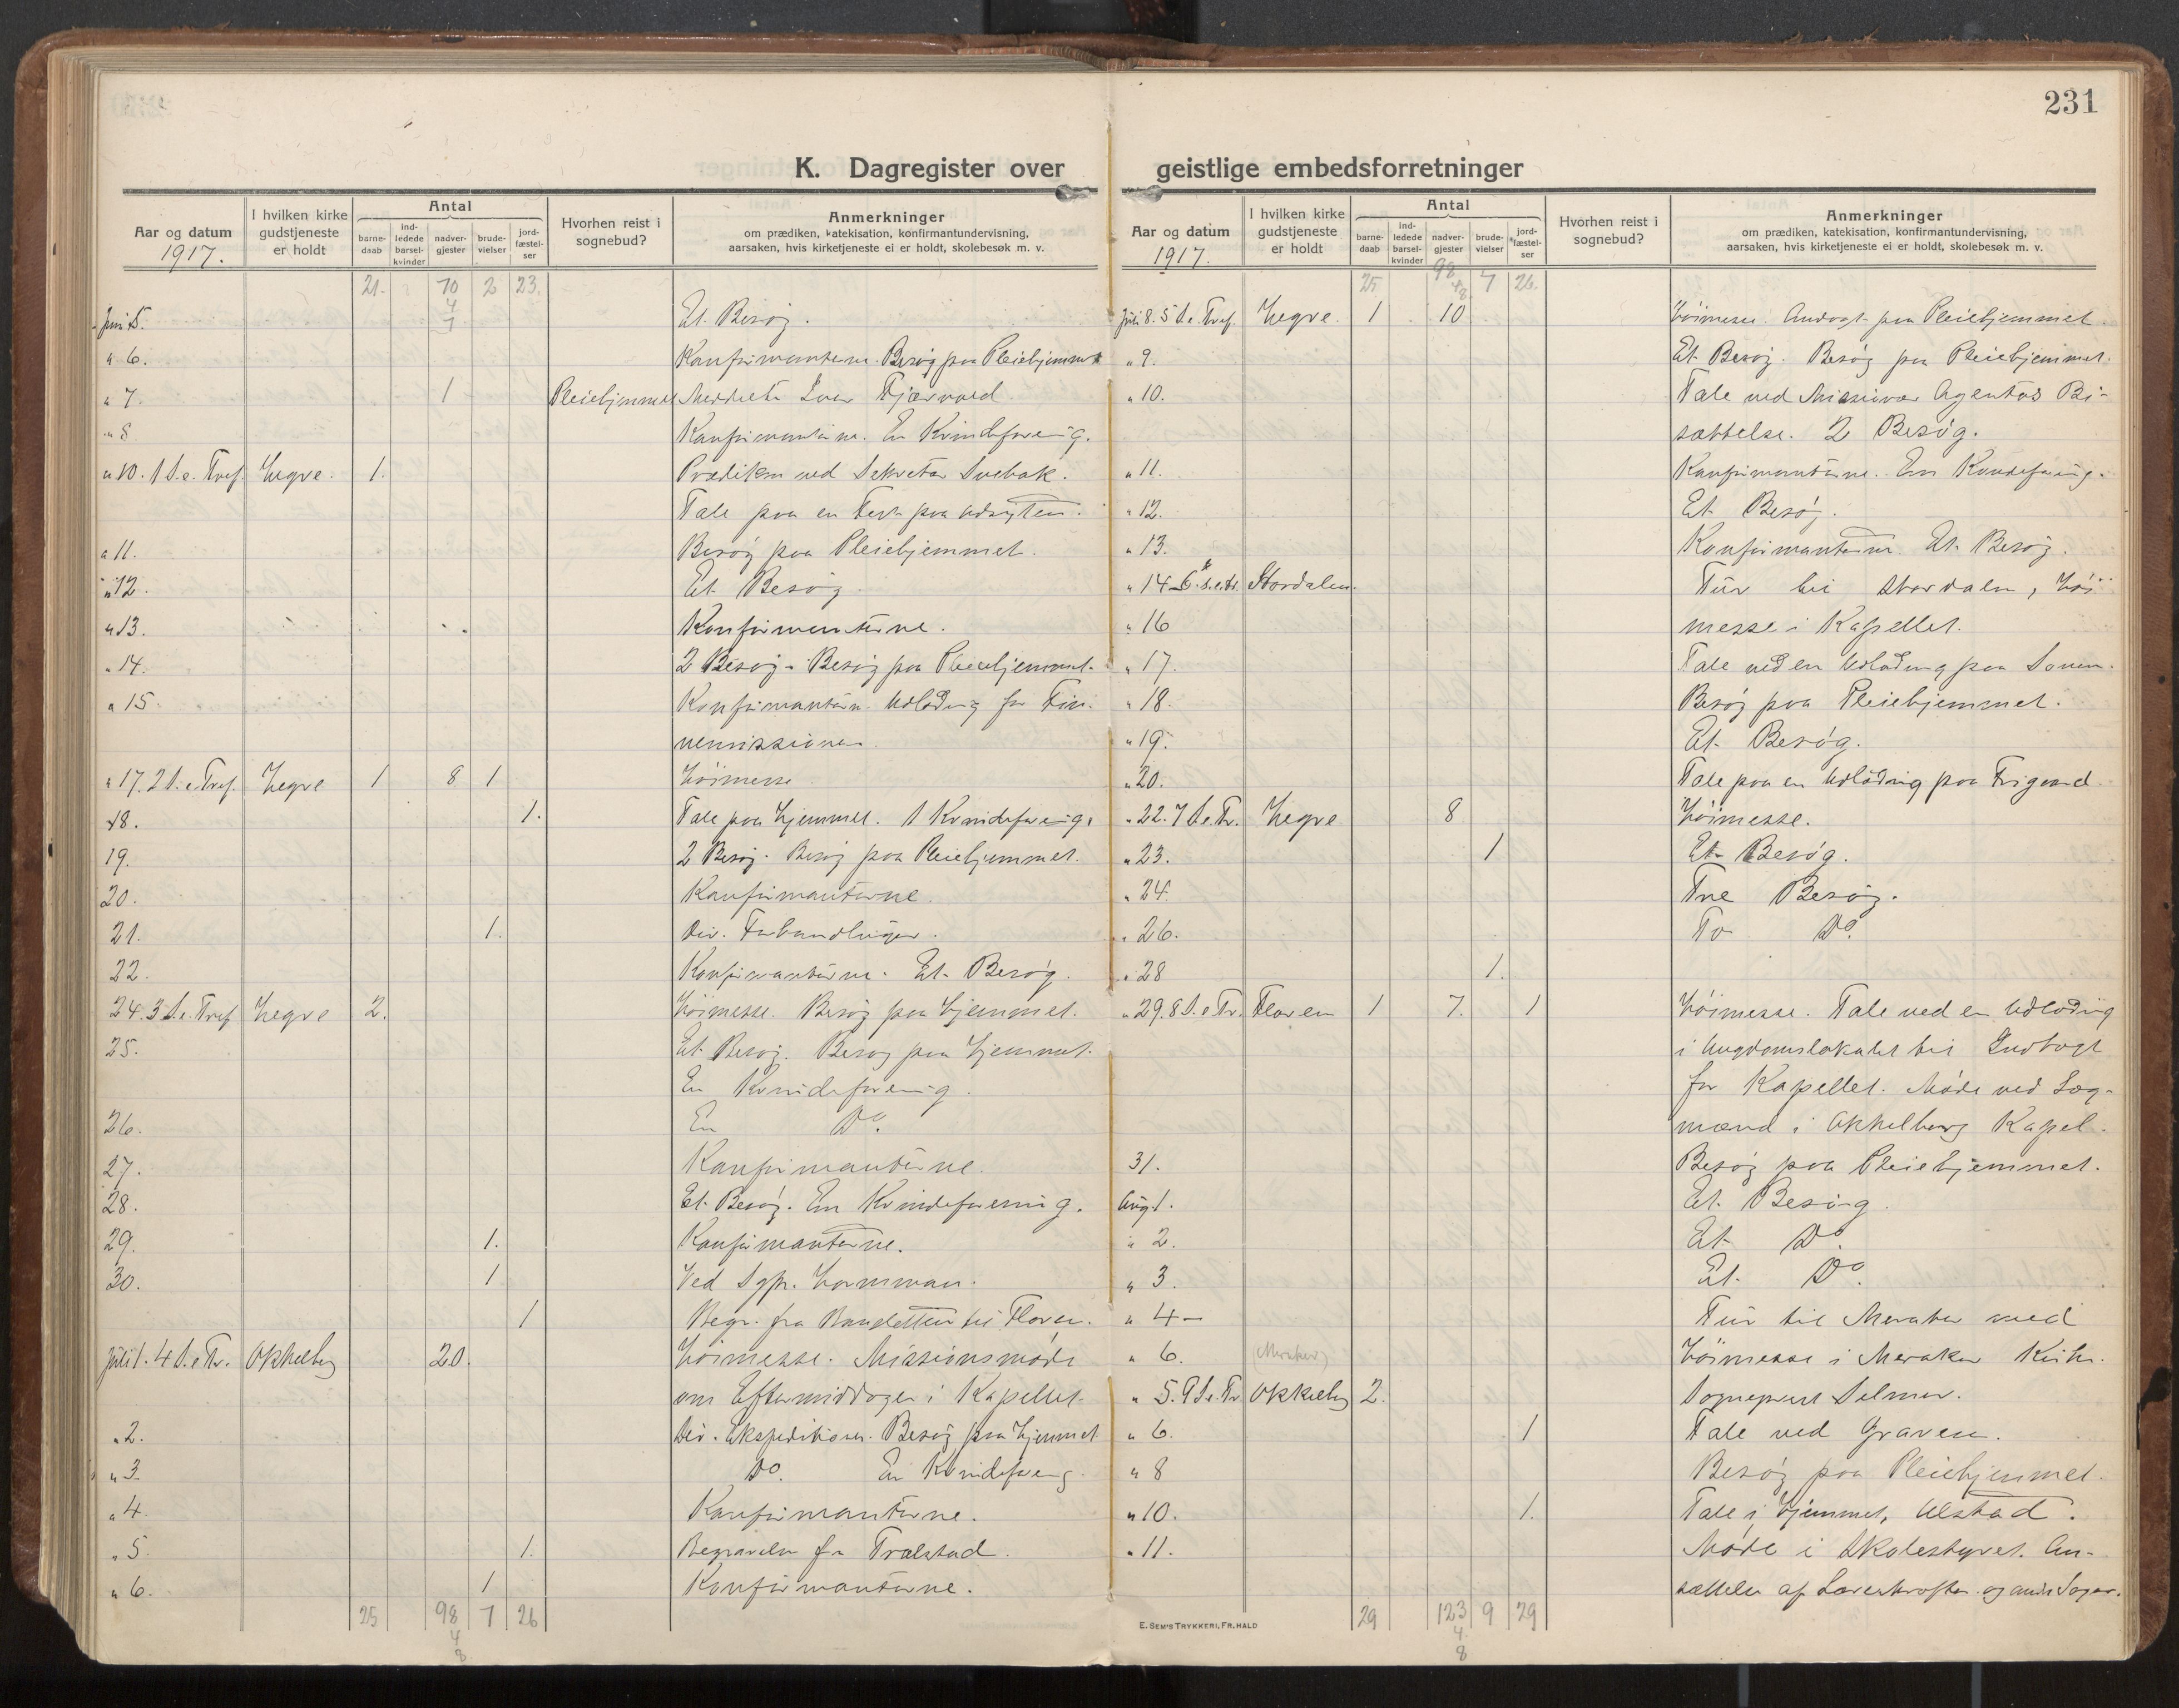 231
K. Dagregister over geistlige embedsforretninger
Aar og datum
1917.
I hvilken kirke gudstjeneste er holdt
Antal
barne-daab
ind-ledede barsel-kvinder
nadver-gjester
brude-vielser
jord-fæstel-ser
Hvorhen reist i sognebud?
Anmerkninger
om prædiken, katekisation, konfirmantundervisning, aarsaken, hvis kirketjeneste ei er holdt, skolebesøk m. v.
21. 70 2 23.
4
Juni 5. 1 Et Besøg.
" 6. Konfirmanterne. Besøg paa Pleiehjemmet
" 7. 1 Pleiehjemmet Meddelte Fjærvold
" 8 Konfirmanterne. En Kvindeforenig.
" 10. 1 S. e. Tref. Hegre. 1. Prædiken ved Sekretær Svebak.
Tale paa en Fest paa
" 11. Besøg paa Pleiehjemmet.
" 12. Et Besøg
" 13. Konfirmanterne.
" 14. 2 Besøg. Besøg paa Pleiehjemmet.
" 15. Konfirmantern. Udlodnig for Fin-
nemissionen
" 17. 2 S. e. Tref. Hegre 1 8 1 Høimesse
18. 1. Tale paa Hjemmet. 1 Kvindeforenig.
19. 2 Besøg. Besøg paa Pleiehjemmet.
20. Konfirmanterne.
21. 1. Div. Forhandlinger.
22. Konfirmanterne. Et Besøg.
24. 3 S. e. Tref Hegre 2. Høimesse. Besøg paa Hjemmet.
25. Et Besøg. Besøg paa Hjemmet.
En Kvindeforenig.
26. En Do.
27. Konfirmanterne.
28. Et Besøg. En Kvindeforening.
29. 1. Konfirmanterne.
30. 1 Ved Sgpr.
1 Begr. fra til Floren.
Juli 1. 4 S. e. Tr. Okkelberg 20. Høimesse. Missionsmøde
om Eftermiddagen i Kapellet.
" 2. Div. Ekspeditioner. Besøg paa Hjemmet
" 3 Do. En Kvindeforenig.
" 4. Konfirmanterne.
" 5. 1. Begravelse fra Trølstad.
" 6. 1 Konfirmanterne.
25 98 7 26
4
8
Aar og datum
1917.
I hvilken kirke gudstjeneste er holdt
Antal
barne-daab
ind-ledede barsel-kvinder
nadver-gjester
brude-vielser
jord-fæstel-ser
Hvorhen reist i sognebud?
Anmerkninger
om prædiken, katekisation, konfirmantundervisning, aarsaken, hvis kirketjeneste ei er holdt, skolebesøk m. v.
25 98 7 26.
4 8.
Juli 8. 5 S. e. Tref. Hegre. 1 10 Høimesse. Andagt paa Pleiehjemmet.
" 9. Et Besøg. Besøg paa Pleiehjemmet.
" 10. Tale ved Agentøs Bi-
sættelse. 2 Besøg.
" 11. Konfirmanterne. En Kvindeforenig.
" 12. Et Besøg.
" 13. Konfirmanterne Et Besøg.
" 14 6. s. e. tr. Stordalen. Tur til Stordalen, Høi-
" 16 messe i Kapellet.
" 17. Tale ved en Udlodning paa
" 18. Besøg paa Pleiehjemmet.
" 19. Et Besøg.
" 20. Tale paa en Udlodnig paa Frigaard.
" 22. 7 S. e. Tr. Hegre 8 Høimesse.
" 23. 1 Et Besøg.
" 24. Tre Besøg.
" 26. To Do.
" 28 1.
" 29. 8 S. e. Tr. Floren 1 7. 1 Høimesse. Tale ved en Udlodnig
i Ungdomslokalet til Indtægt
for Kapellet. Møde ved Læg-
mænd i Okkelberg Kapel.
31. Besøg paa Pleiehjemmet.
Aug 1. Et Besøg.
" 2. Et Do.
" 3. Et. Do.
" 4 – Tur til Meraker med
" 6. (Meraker) Høimesse i Meraker Kirke.
" 5. 9 S. e. Tr. Okkelberg 2. Sogneprest Selmer.
" 6. 1 Tale ved Graven.
" 8 Besøg paa Pleiehjemmet.
" 10. 1. Tale i Hjemmet, Ulstad.
" 11. Møde i Skolestyret. An-
sættelse af Lærerkræfter og andre Sager.
29 123 9 29
4
8
E. SEM'S TRYKKERI, FR.HALD